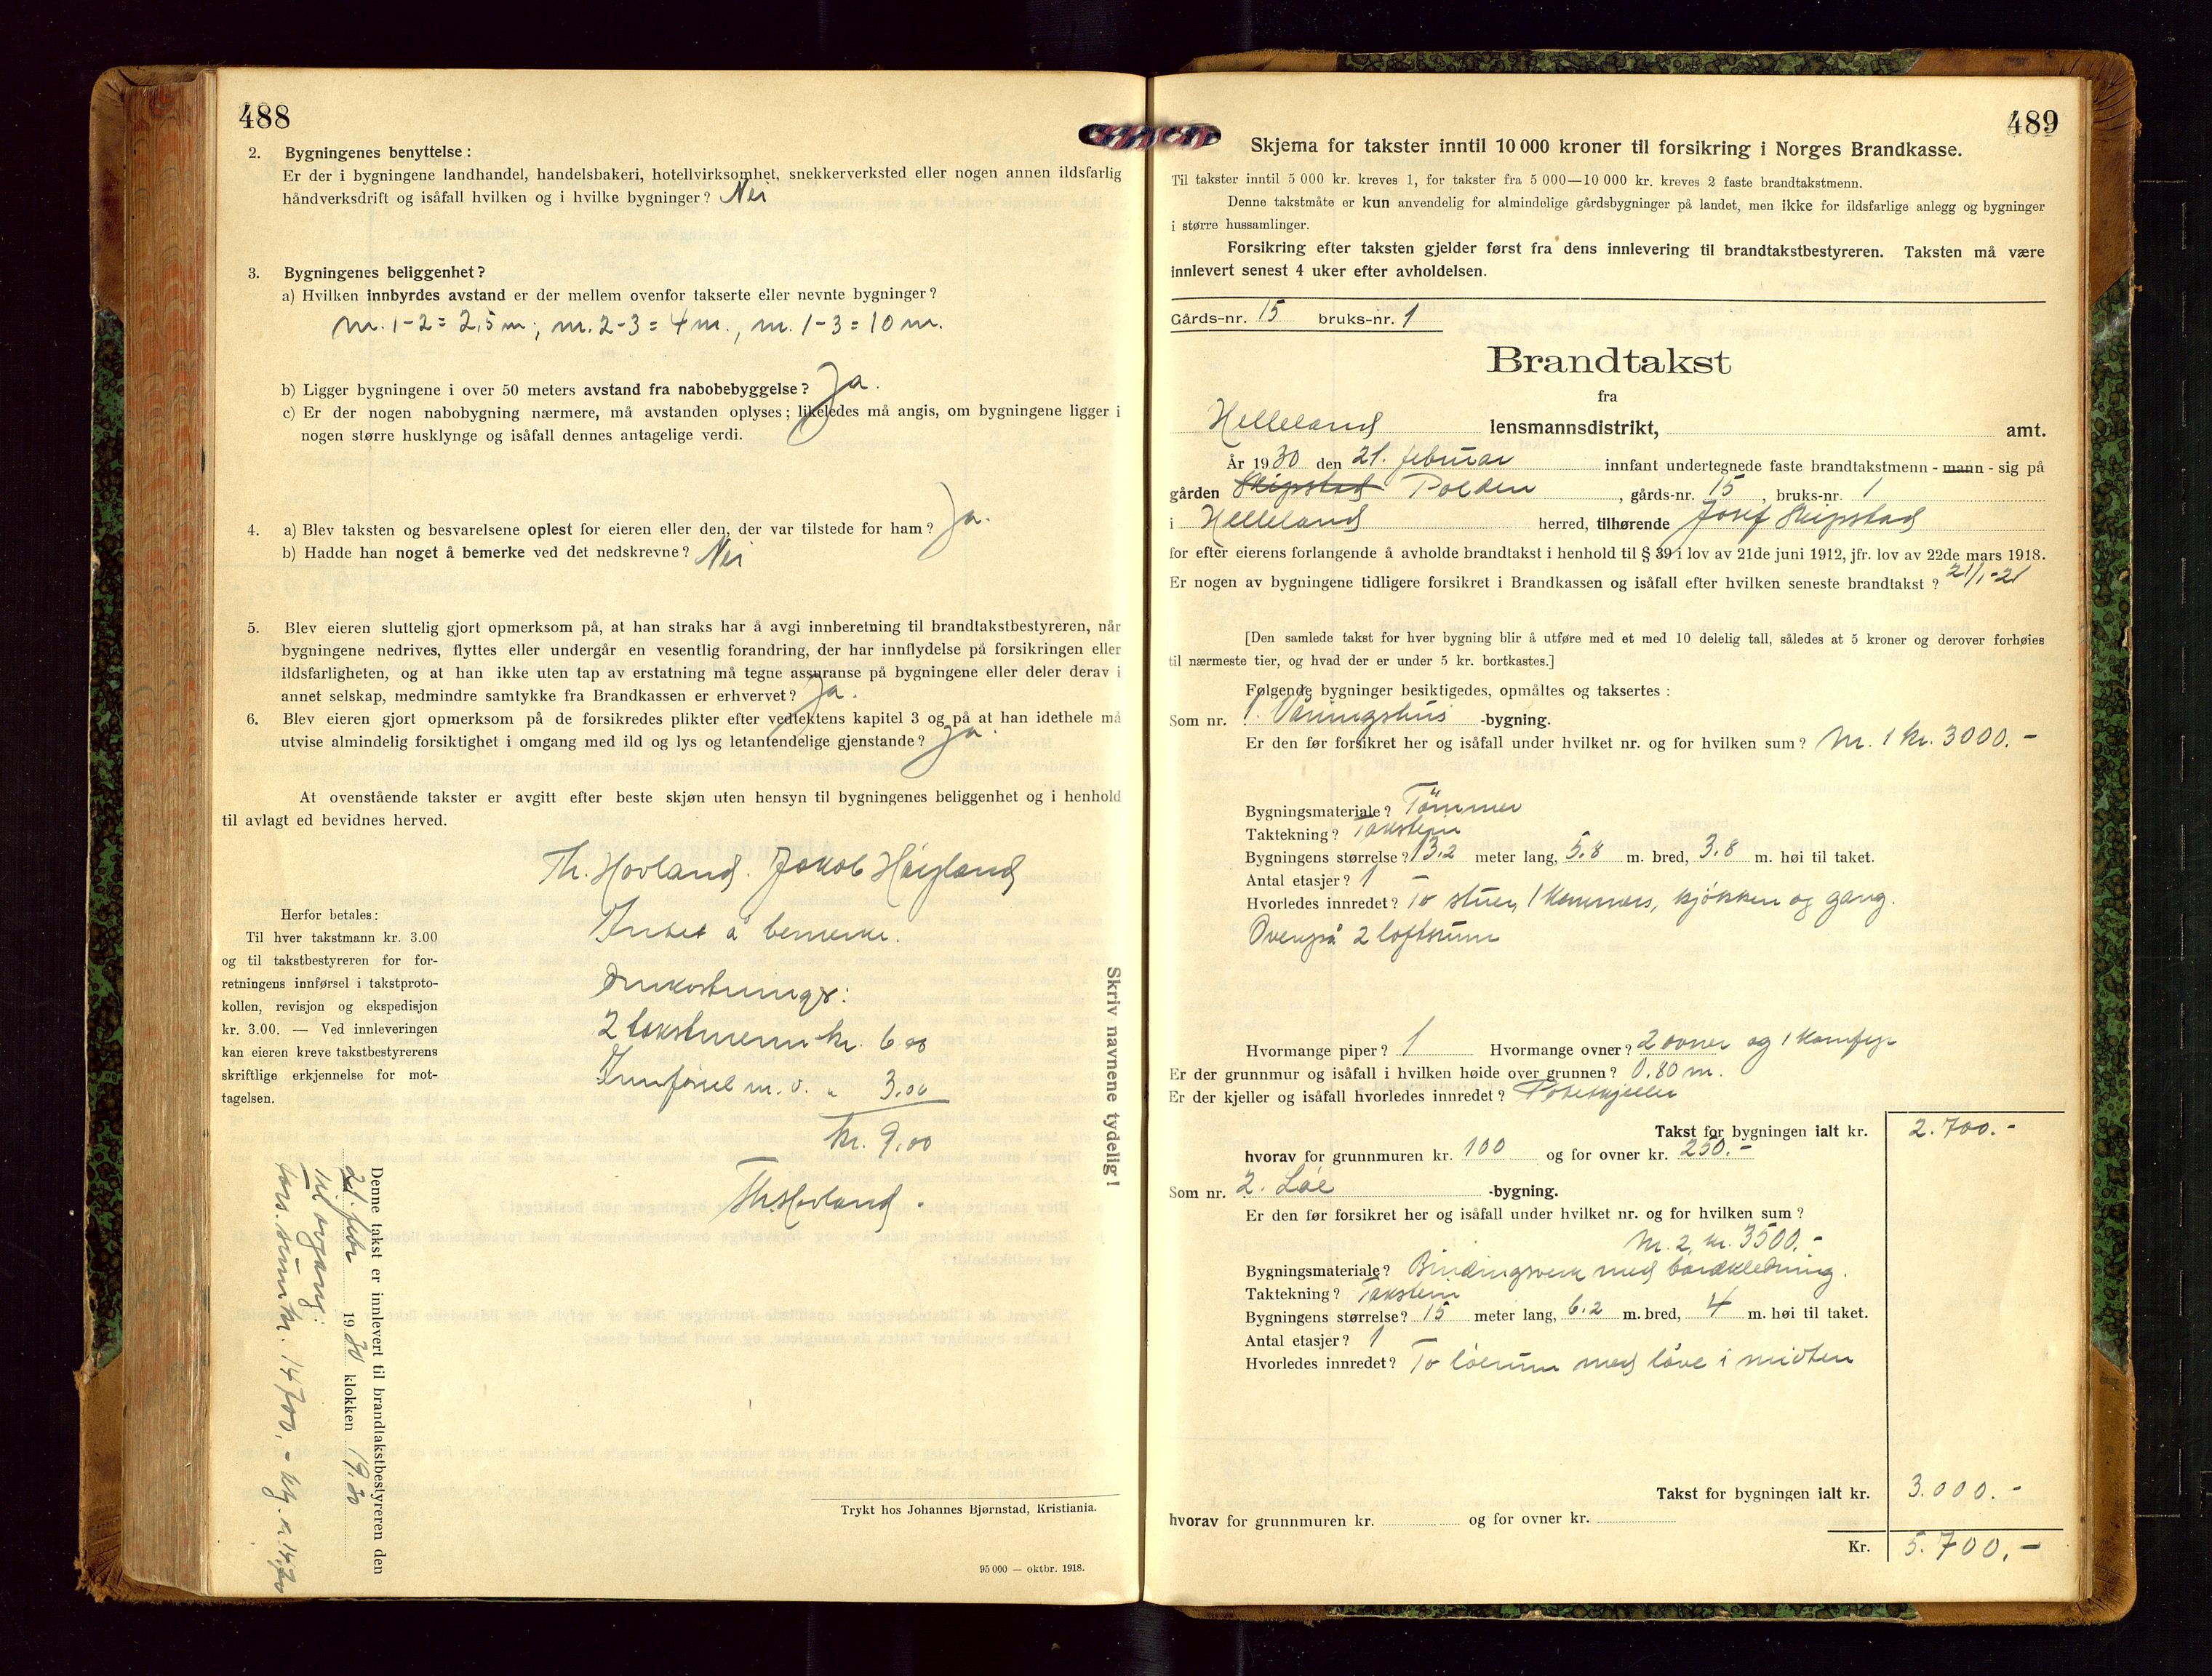 488
2. Bygningenes benyttelse:
Er der i bygningene landhandel, handelsbakeri, hotellvirksomhet, snekkerverksted eller nogen annen ildsfarlig
håndverksdrift og isåfall hvilken og i hvilke bygninger? Nei
3. Bygningenes beliggenhet?
a) Hvilken innbyrdes avstand er der mellem ovenfor takserte eller nevnte bygninger?
nr. 1-2 = 2,5 m; nr. 2-3 = 4 m., nr. 1-3 = 10 m.
b) Ligger bygningene i over 50 meters avstand fra nabobebyggelse? Ja.
c) Er der nogen nabobygning nærmere, må avstanden oplyses; likeledes må angis, om bygningene ligger i
nogen større husklynge og isåfall dennes antagelige verdi.
4. a) Blev taksten og besvarelsene oplest for eieren eller den, der var tilstede for ham? Ja.
b) Hadde han noget å bemerke ved det nedskrevne? Nei
5. Blev eieren sluttelig gjort opmerksom på, at han straks har å avgi innberetning til brandtakstbestyreren, når
bygningene nedrives, flyttes eller undergår en vesentlig forandring, der har innflydelse på forsikringen eller
ildsfarligheten, og at han ikke uten tap av erstatning må tegne assuranse på bygningene eller deler derav i
annet selskap, medmindre samtykke fra Brandkassen er erhvervet? Ja.
6. Blev eieren gjort opmerksom på de forsikredes plikter efter vedtektens kapitel 3 og på at han idethele må
utvise almindelig forsiktighet i omgang med ild og lys og letantendelige gjenstande? Ja.
At ovenstående takster er avgitt efter beste skjøn uten hensyn til bygningenes beliggenhet og i henhold
til avlagt ed bevidnes herved.
Th. Hovland. Jakob Høigland
Intet å bemerke.
Omkostninger:
2 takstmenn kr. 6.00
Innførsel m. v. " 3.00
kr. 9.00
Th. Hovland.
Herfor betales:
Til hver takstmann kr. 3.00
og til takstbestyreren for for-
retningens innførsel i takstproto-
kollen, revisjon og ekspedisjon
kr. 3.00. — Ved innleveringen
kan eieren kreve takstbestyrerens
skriftlige erkjennelse for mot-
tagelsen.
Skriv navnene tydelig!
Denne takst er innlevert til brandtakstbestyreren den
21. febr 1930 klokken 19.30
Til avgang:
fors. sum kr. 14700.-
Trykt hos Johannes Bjørnstad, Kristiania.
95 000 — oktbr. 1918.
489
Skjema for takster inntil 10 000 kroner til forsikring i Norges Brandkasse.
Til takster inntil 5 000 kr. kreves 1, for takster fra 5 000—10 000 kr. kreves 2 faste brandtakstmenn.
Denne takstmåte er kun anvendelig for almindelige gårdsbygninger på landet, men ikke for ildsfarlige anlegg og bygninger
i større hussamlinger.
Forsikring efter taksten gjelder først fra dens innlevering til brandtakstbestyreren. Taksten må være
innlevert senest 4 uker efter avholdelsen.
Gårds-nr. 15 bruks-nr. 1
Brandtakst
fra
Helleland lensmannsdistrikt, amt.
År 1930 den 21. februar innfant undertegnede faste brandtakstmenn - mann - sig på
gården Skipstad Polden, gårds-nr. 15, bruks-nr. 1
i Helleland herred, tilhørende Josef Skipstad
for efter eierens forlangende å avholde brandtakst i henhold til § 39 i lov av 21de juni 1912, jfr. lov av 22de mars 1918.
Er nogen av bygningene tidligere forsikret i Brandkassen og isåfall efter hvilken seneste brandtakst? 21/1-21
[Den samlede takst for hver bygning blir å utføre med et med 10 delelig tall, således at 5 kroner og derover forhøies
til nærmeste tier, og hvad der er under 5 kr. bortkastes.]
Følgende bygninger besiktigedes, opmåltes og taksertes:
Som nr. 1. Våningshus -bygning.
Er den før forsikret her og isåfall under hvilket nr. og for hvilken sum? Nr. 1 kr. 3000.-
Bygningsmateriale? Tømmer
Taktekning? Takstein
Bygningens størrelse? 13,2 meter lang, 5.8 m. bred, 3.8 m. høi til taket.
Antal etasjer? 1
Hvorledes innredet? To stuer, 1 kammers, kjøkken og gang.
Ovenpå 2 loftsrum
Hvormange piper? 1 Hvormange ovner? 2 ovner og 1 komfyr
Er der grunnmur og isåfall i hvilken høide over grunnen? 0.80 m.
Er der kjeller og isåfall hvorledes innredet? Potetkjeller
Takst for bygningen ialt kr. 2.700.-
hvorav for grunnmuren kr. 100 og for ovner kr. 250.-
Som nr. 2. Løe -bygning.
Er den før forsikret her og isåfall under hvilket nr. og for hvilken sum?
Nr. 2, kr. 3500.-
Bygningsmateriale? Bindingsverk med bordkledning.
Taktekning? Takstein
Bygningens størrelse? 15 meter lang, 6.2 m. bred, 4 m. høi til taket.
Antal etasjer? 1
Hvorledes innredet? To løerum med låve i midten
Takst for bygningen ialt kr. 3.000.-
hvorav for grunnmuren kr. og for ovner kr.
Kr. 5.700.-